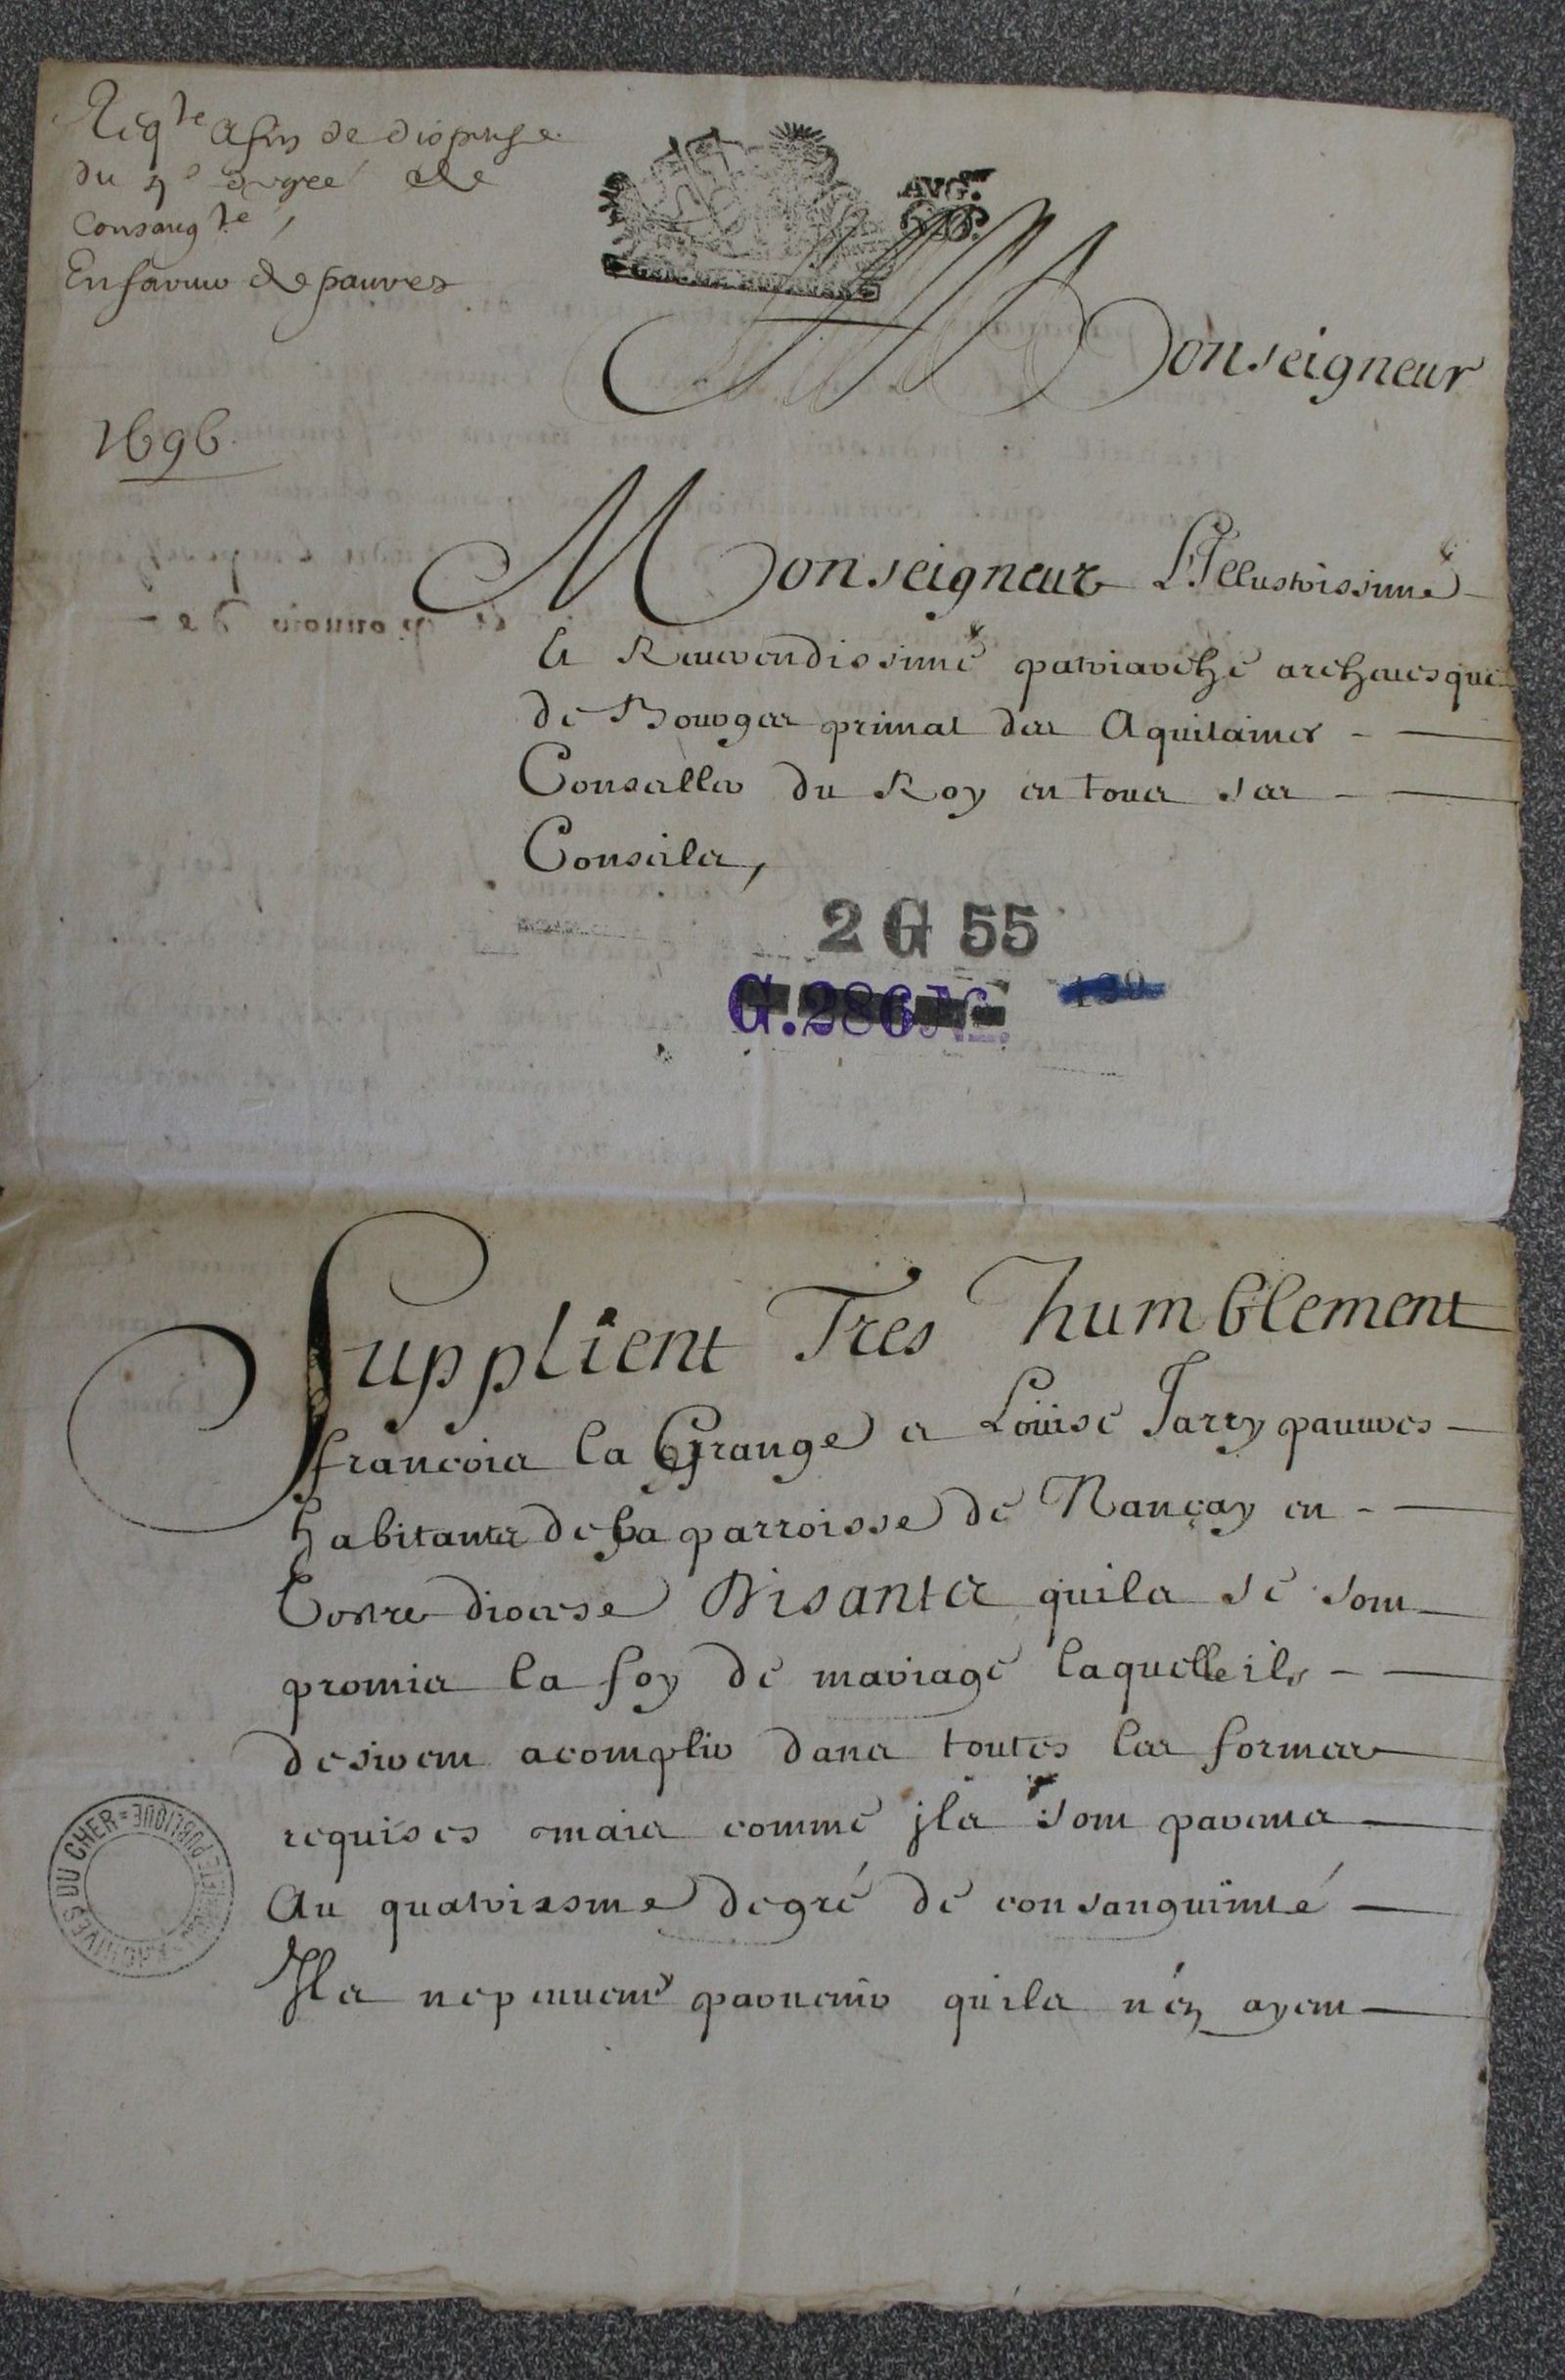 Reqte afin de dispense
du 4e degré de
Consangte,
En faveur de pauvres
1696.
AVG.
GEN. DE BOVRGES
Monseigneur
Monseigneur L'Illustrissime
et Reuerendissime patriarche archeuesque
de Bourges primat des Aquitaines
Conseiller du Roy en tous ses
Conseils,
2 G 55
G. 286
Supplient Tres humblement
francois la Grange et Loüise Jarry pauures
habitants de la parroisse de Nançay en
Vostre diocese Disants quils se sont
promis la foy de mariage laquelle ils
desirent acomplir dans toutes les formes
requises mais comme jls sont parents
Au quatriesme degré de consanguinité
Ils ne peuuent paruenir quils n'en ayent
ARCHIVES DU CHER